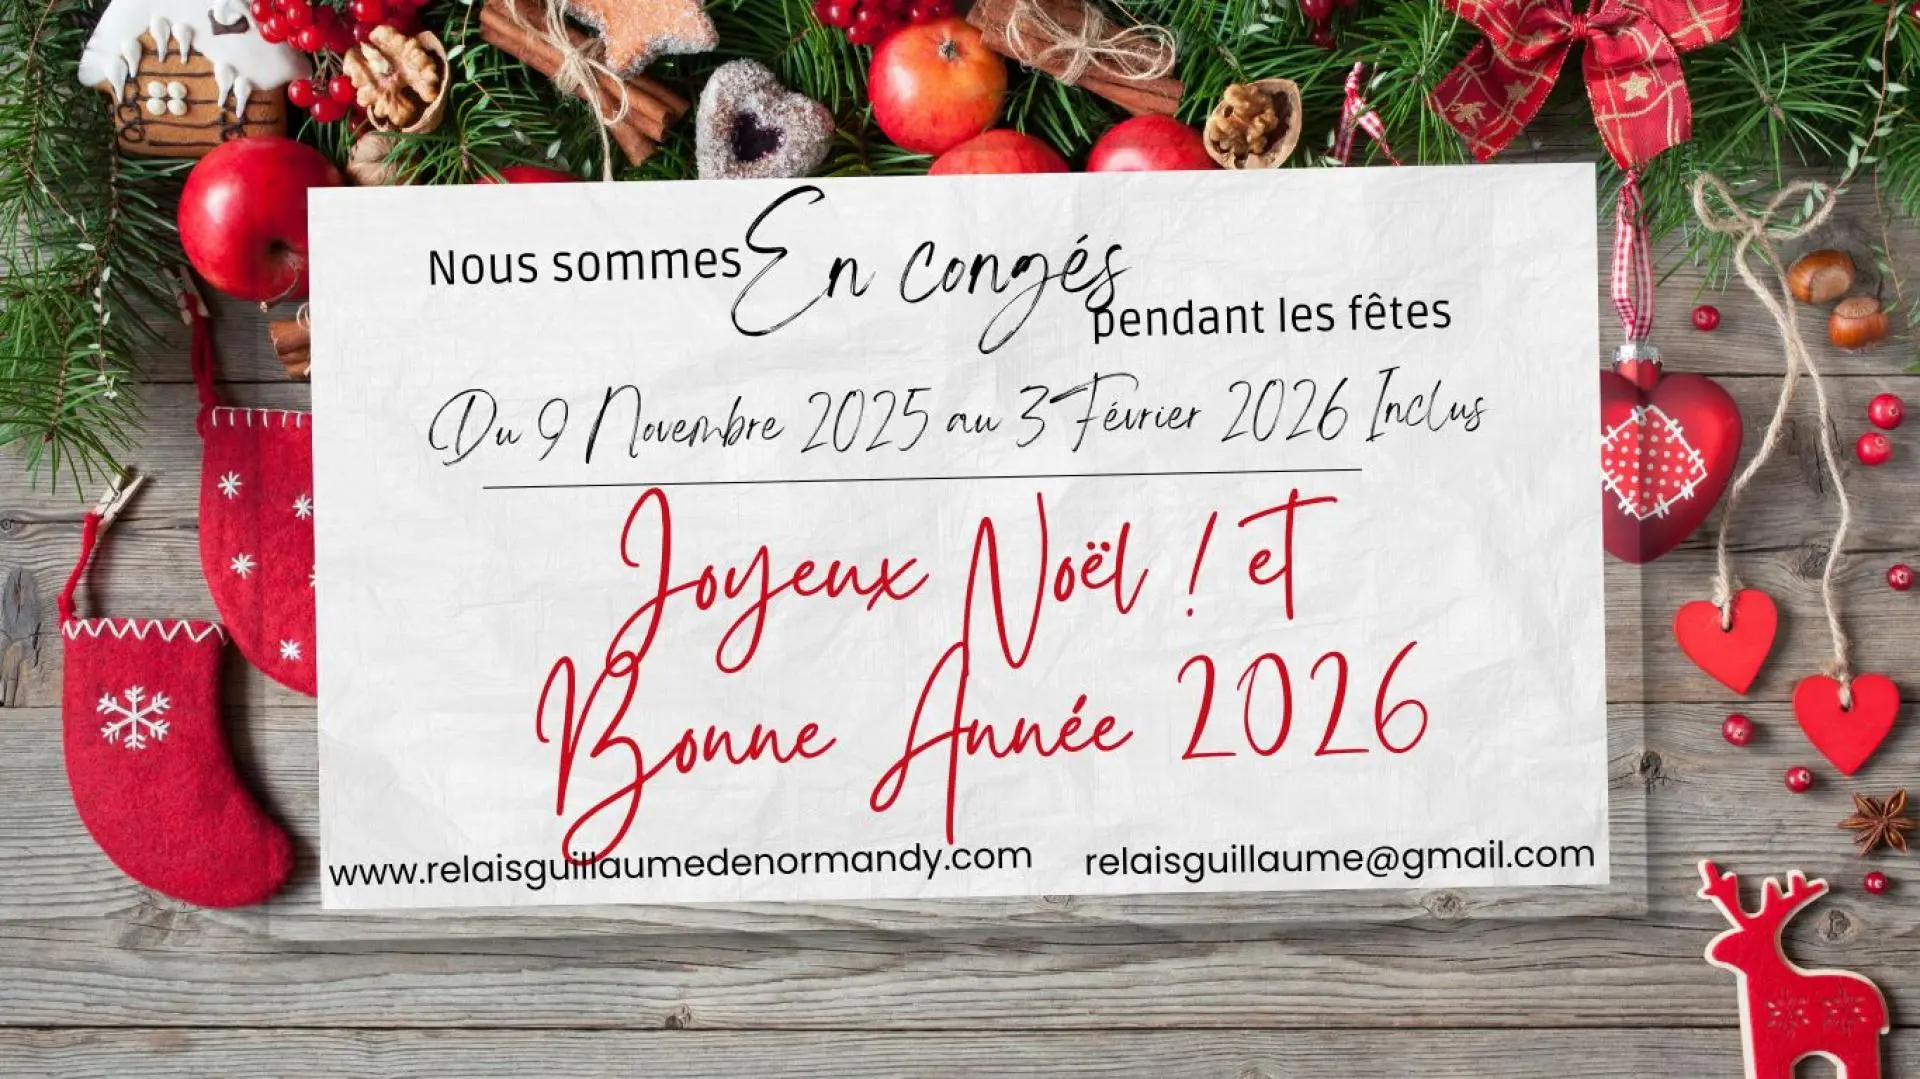 Nous sommes En congés
pendant les fêtes
Du 9 Novembre 2025 au 3 Février 2026 Inclus
Joyeux Noël ! et
Bonne Année 2026
www.relaisguillaumedenormandy.com relaisguillaume@gmail.com